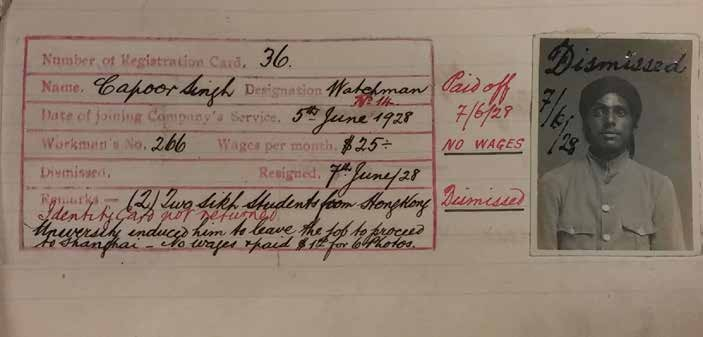 Number of Registration Card. 36.
Name. Capoor Singh Designation Watchman
No 14.
Date of joining Company's Service. 5th June 1928
Workmen's No. 266 Wages per month. $25-
Dismissed. Resigned. 7th June/28
Remarks:- (2) Two Sikh Students from Hongkong
Identity Card not returned
University induced him to leave the job to proceed
to Shanghai - No wages & paid $1 for 6 Photos.
Paid off
7/6/28
NO WAGES
Dismissed
Dismissed
7/6/28